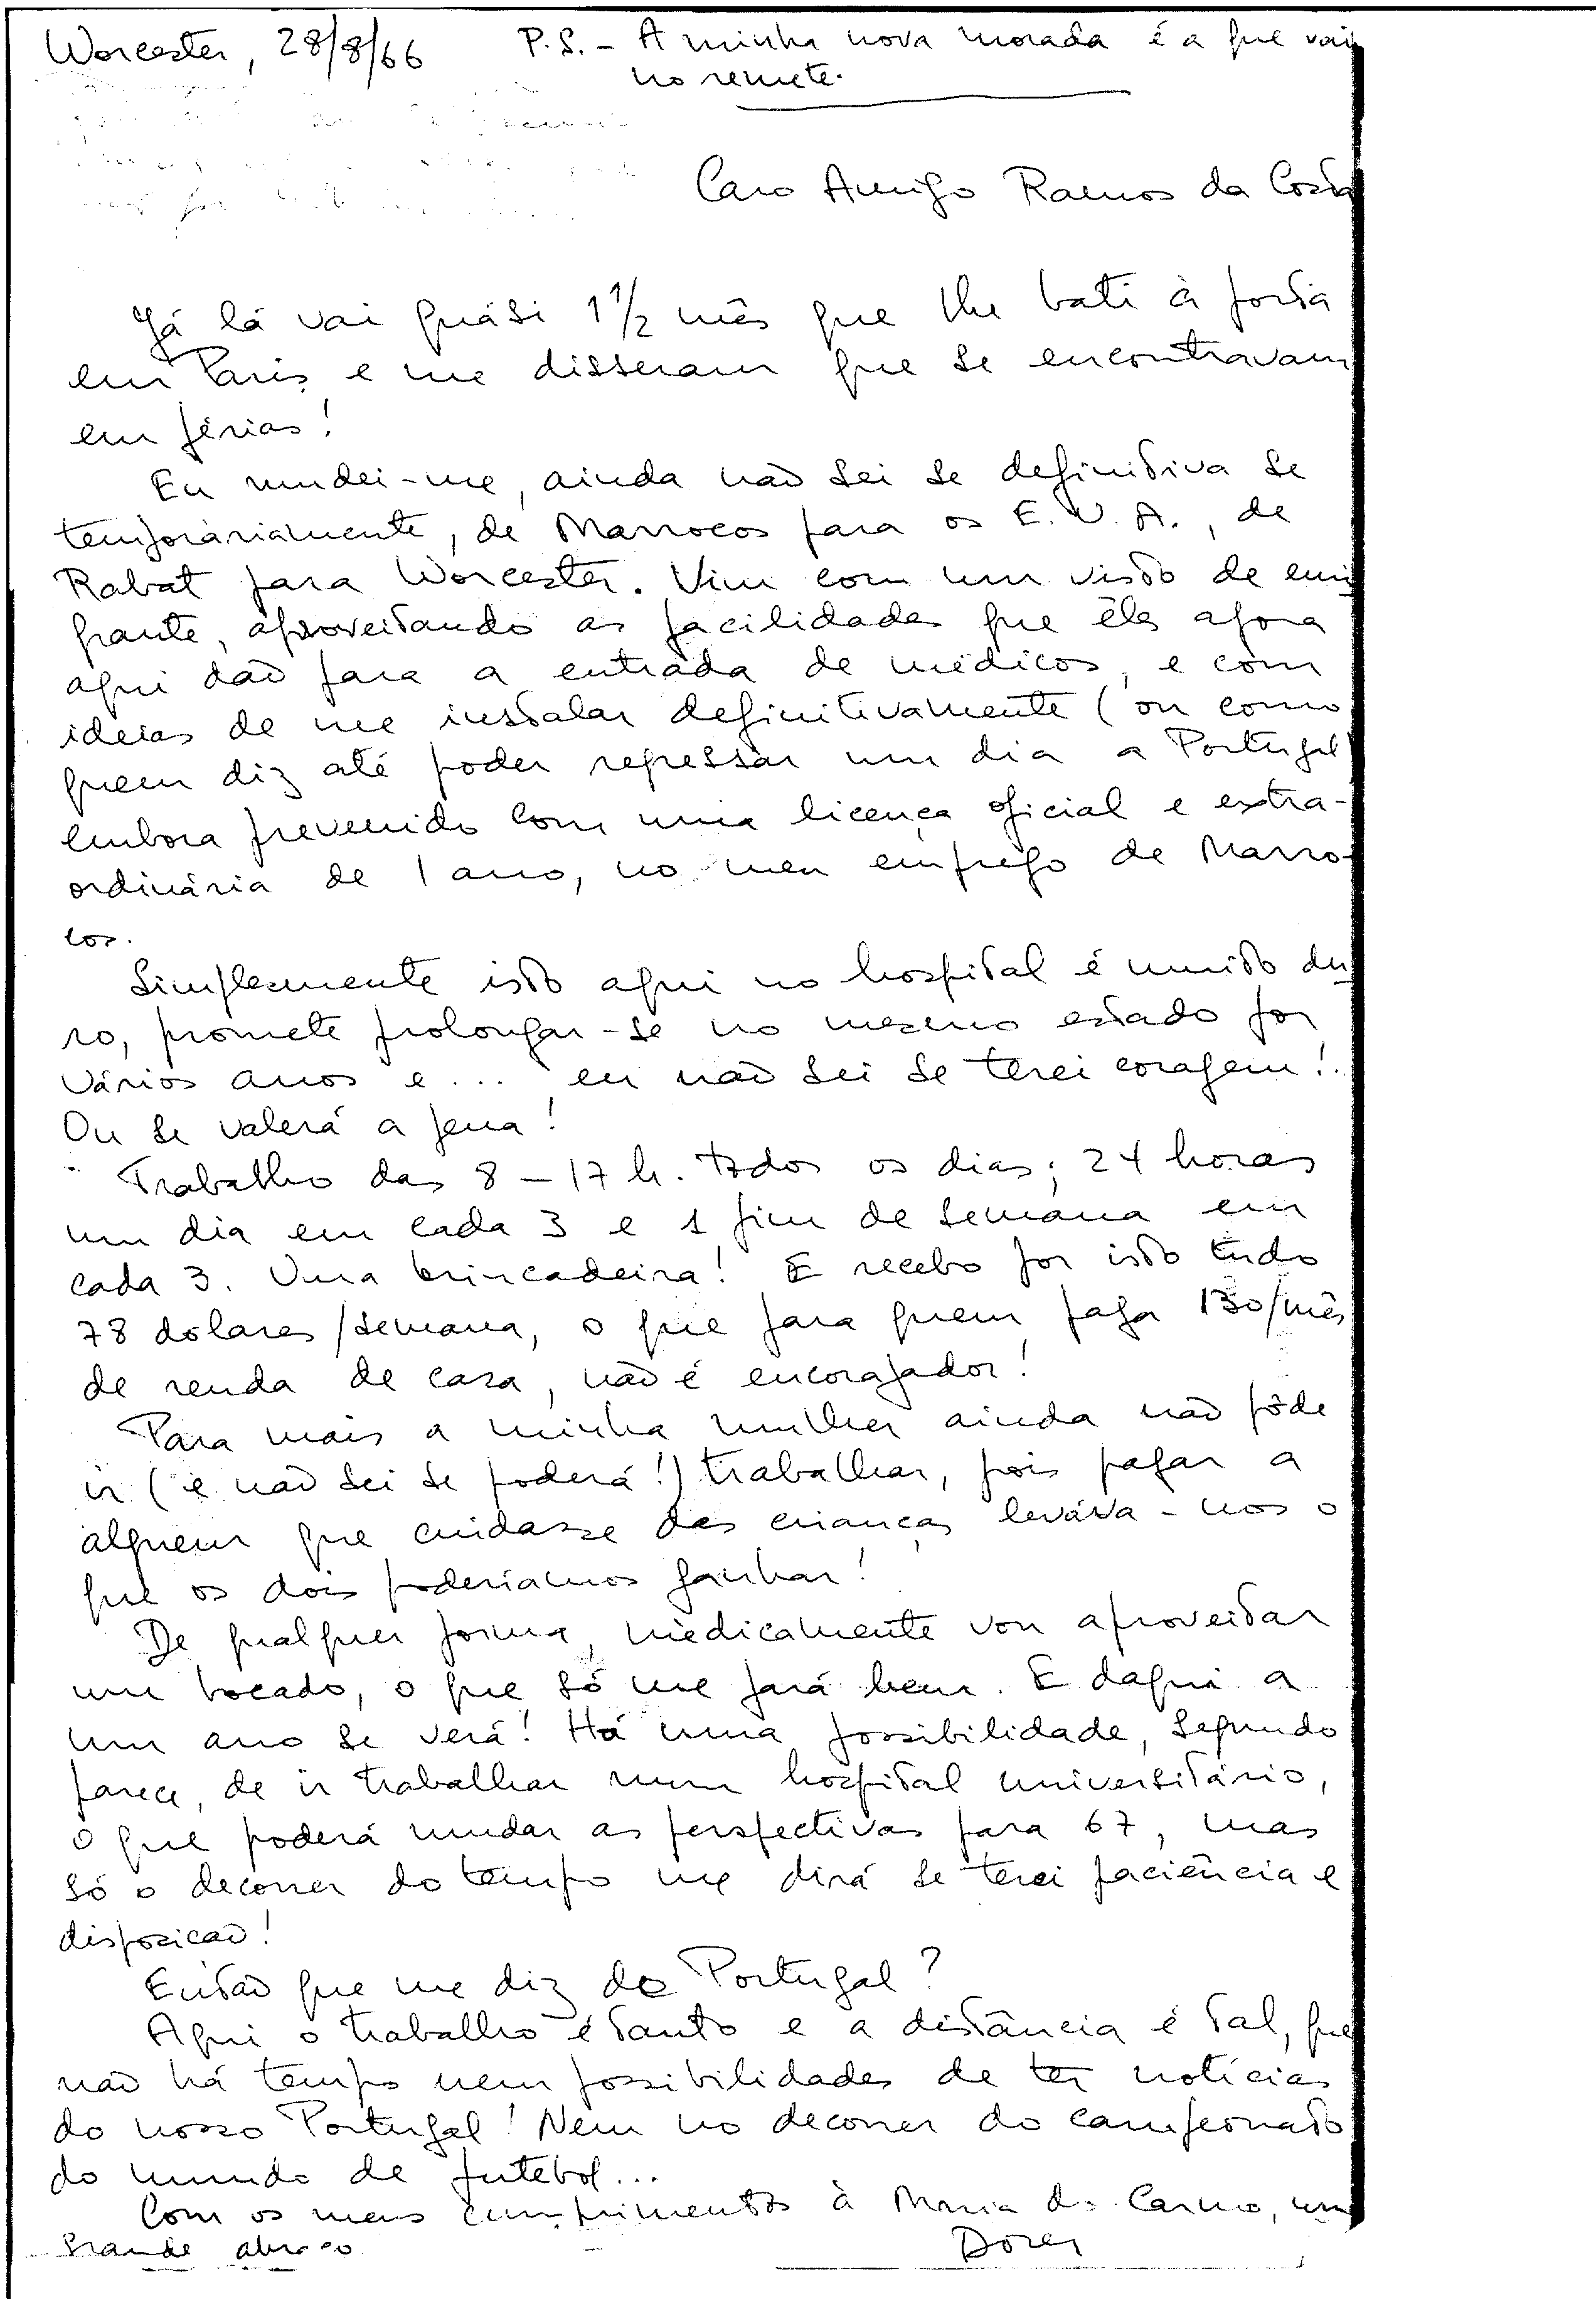 Worcester, 28/8/66
P.S. - A minha nova morada é a que vai
no remete.
Caro Amigo Ramos da Costa
Já lá vai quási 1 1/2 mês que lhe bati à porta
em Paris e me disseram que se encontravam
em férias!
Eu mudei-me, ainda não sei se definitiva se
temporàriamente, de Marrocos para os E.U.A., de
Rabat para Worcester. Vim com um visto de emi
grante, aproveitando as facilidades que êles agora
aqui dão para a entrada de médicos, e com
ideias de me instalar definitivamente (ou como
quem diz até poder regressar um dia a Portugal)
embora prevenido com uma licença oficial e extra-
ordinária de 1 ano, no meu emprego de Marro-
cos.
Simplesmente isto aqui no hospital é muito du
ro, promete prolongar-se no mesmo estado por
vários anos e... eu não sei se terei coragem!.
Ou se valerá a pena!
Trabalho das 8 - 17 h. todos os dias; 24 horas
um dia em cada 3 e 1 fim de semana em
cada 3. Uma brincadeira! E recebo por isto tudo
78 dolares/semana, o que para quem paga 130/mês
de renda de casa, não é encorajador!
Para mais a minha mulher ainda não pôde
ir (e não sei se poderá!) trabalhar, pois pagar a
alguem que cuidasse das crianças levava-nos o
que os dois poderiamos ganhar!
De qualquer forma, mèdicamente vou aproveitar
um bocado, o que só me fará bem. E daqui a
um ano se verá! Há uma possibilidade, segundo
parece, de ir trabalhar num hospital universitário,
o que poderá mudar as perspectivas para 67, mas
só o decorrer do tempo me dirá se terei paciência e
disposicão!
Então que me diz de Portugal?
Aqui o trabalho é tanto e a distância é tal, que
não há tempo nem possibilidades de ter notícias
do nosso Portugal! Nem no decorrer do campeonato
do mundo de futebol...
Com os meus cumprimentos à Maria do Carmo, um
grande abraço